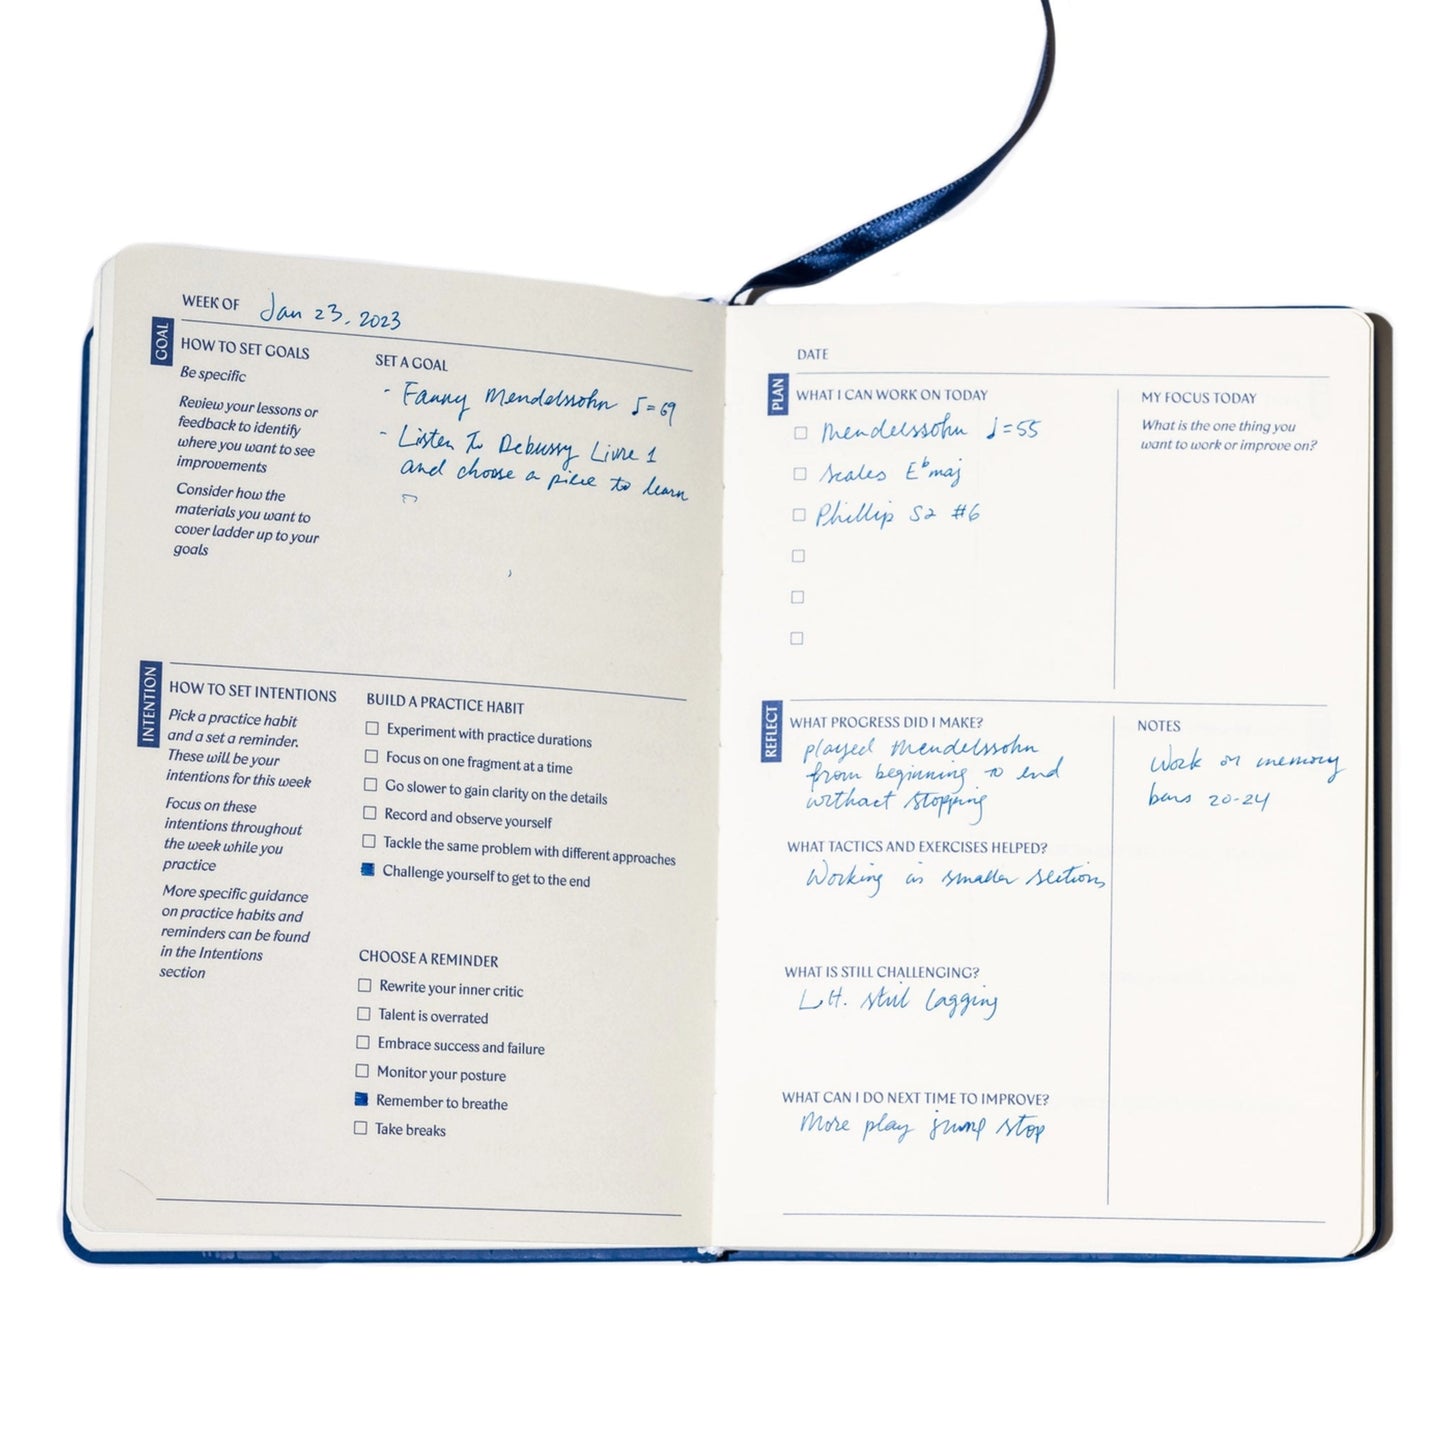 WEEK OF Jan 23, 2023
GOAL
HOW TO SET GOALS
Be specific
Review your lessons or
feedback to identify
where you want to see
improvements
Consider how the
materials you want to
cover ladder up to your
goals
SET A GOAL
- Fanny Mendelssohn ♩=69
- Listen To Debussy Livre 1
and choose a piece to learn
INTENTION
HOW TO SET INTENTIONS
Pick a practice habit
and a set a reminder.
These will be your
intentions for this week
Focus on these
intentions throughout
the week while you
practice
More specific guidance
on practice habits and
reminders can be found
in the Intentions
section
BUILD A PRACTICE HABIT
Experiment with practice durations
Focus on one fragment at a time
Go slower to gain clarity on the details
Record and observe yourself
Tackle the same problem with different approaches
Challenge yourself to get to the end
CHOOSE A REMINDER
Rewrite your inner critic
Talent is overrated
Embrace success and failure
Monitor your posture
Remember to breathe
Take breaks
DATE
PLAN
WHAT I CAN WORK ON TODAY
Mendelssohn ♩=55
Scales E♭ maj
Phillip S2 #6
MY FOCUS TODAY
What is the one thing you
want to work or improve on?
REFLECT
WHAT PROGRESS DID I MAKE?
played Mendelssohn
from beginning to end
without stopping
WHAT TACTICS AND EXERCISES HELPED?
Working in smaller sections
WHAT IS STILL CHALLENGING?
L.H. still lagging
WHAT CAN I DO NEXT TIME TO IMPROVE?
More play jump stop
NOTES
Work on memory
bars 20-24